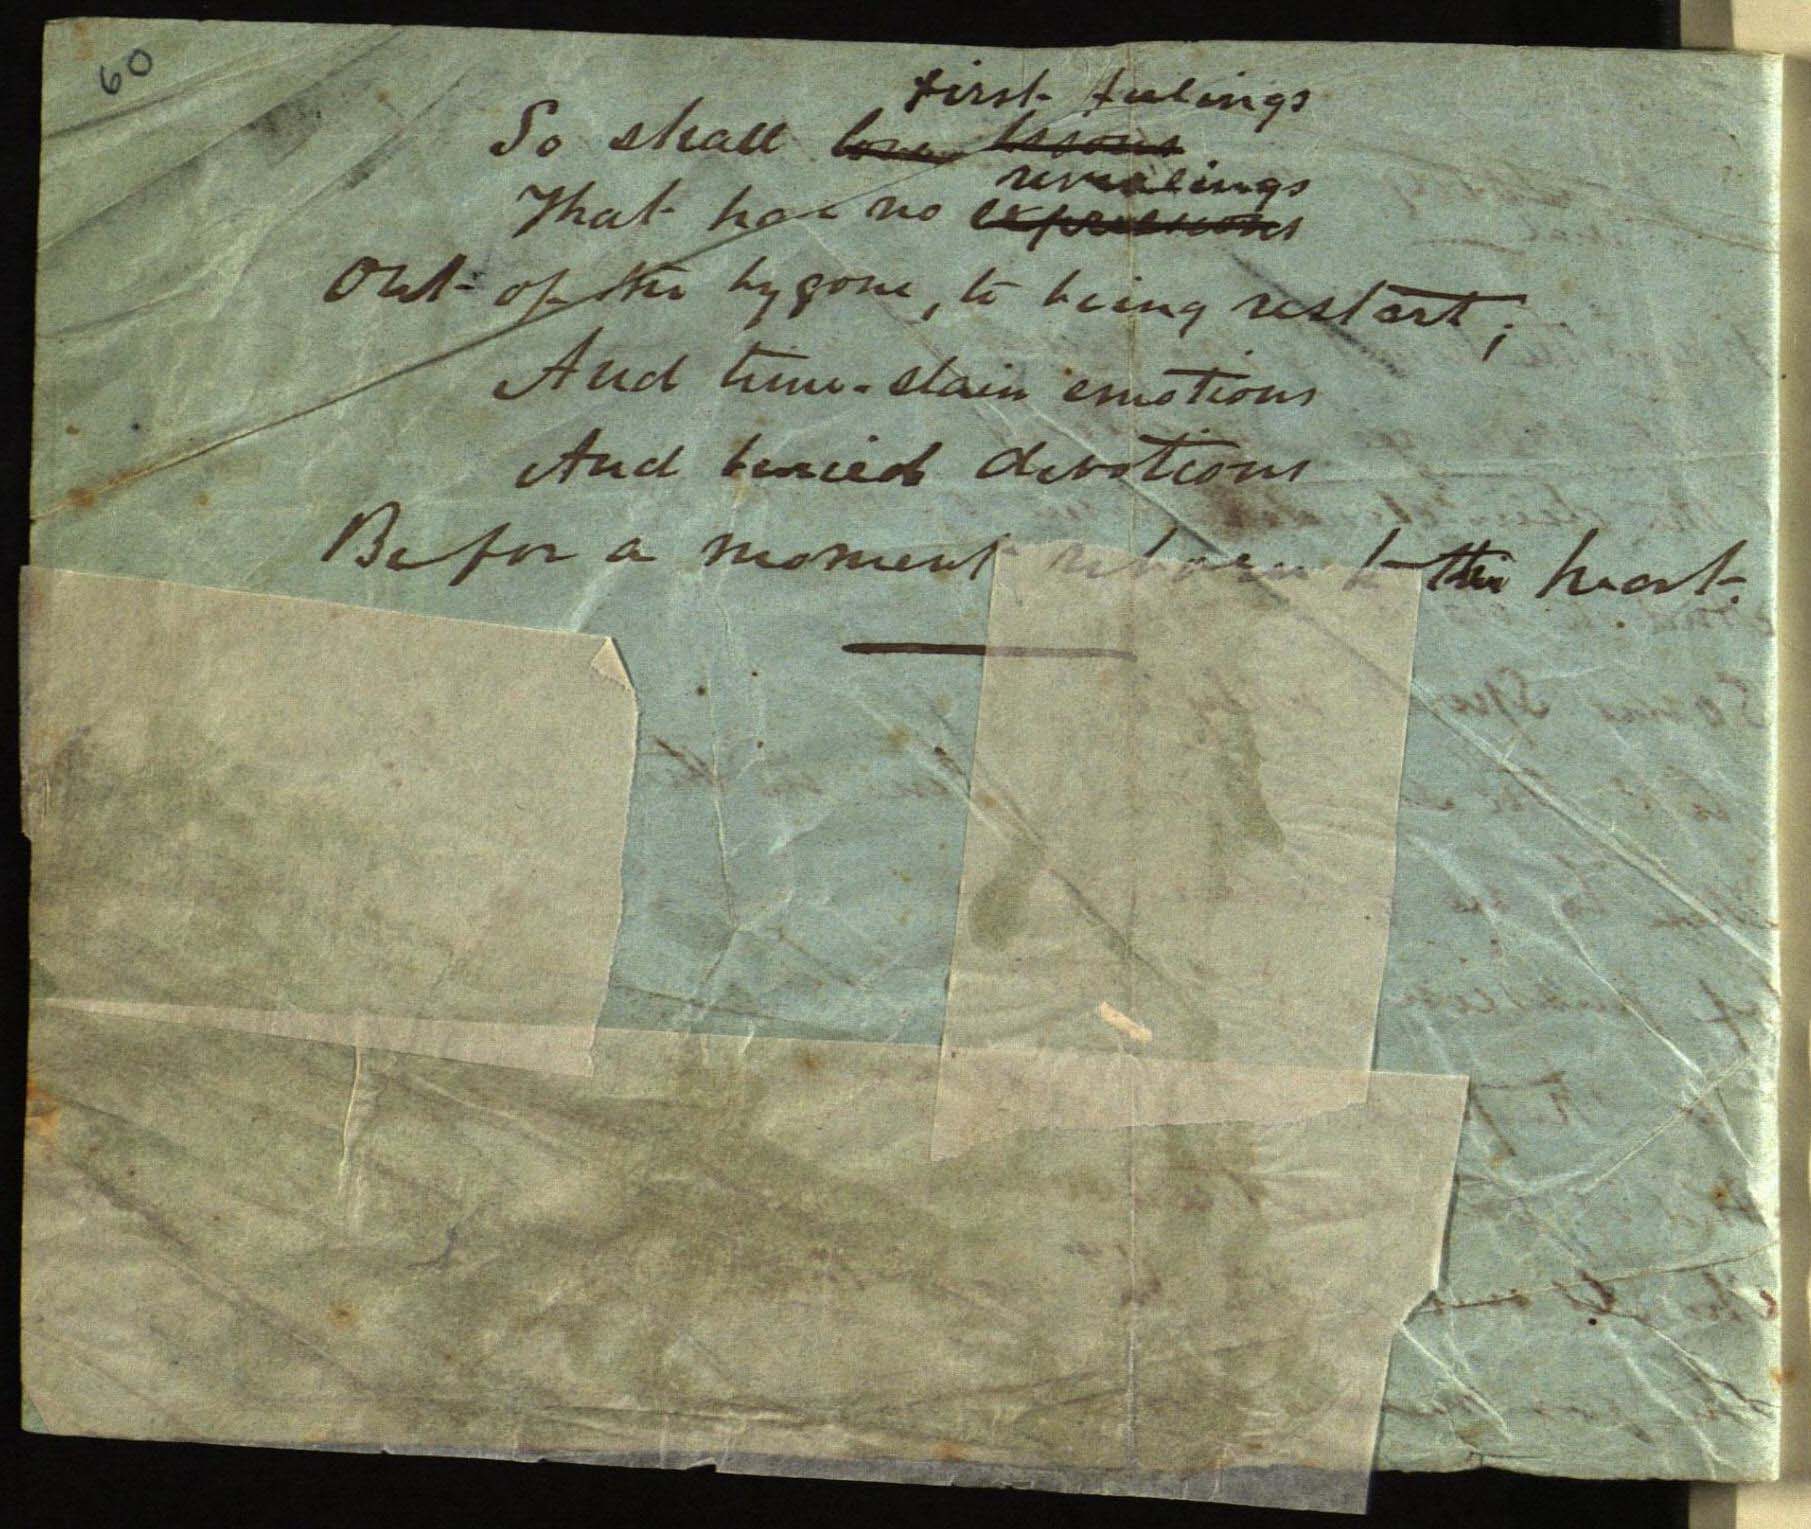 60
first feelings
So shall love lessons
revealings
That has no expressions
Out of the bygone, to being restart;
And time-slain emotions
And buried devotions
Be for a moment reborn to the heart.